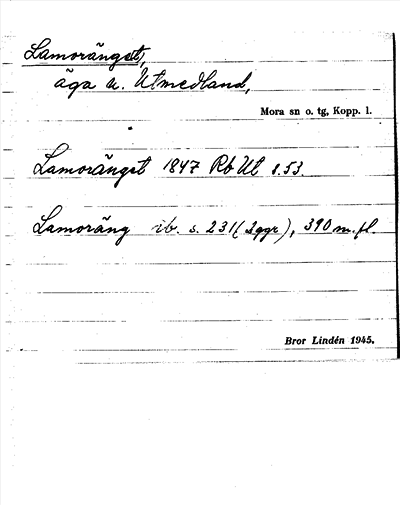 Lamoränget,
äga u. Utmedland,
Mora sn o. tg, Kopp. l.
Lamoränget 1847 Rb Ut s. 53
Lamoräng ib. s. 231 (2 ggr), 390 m. fl.
Bror Lindén 1945.